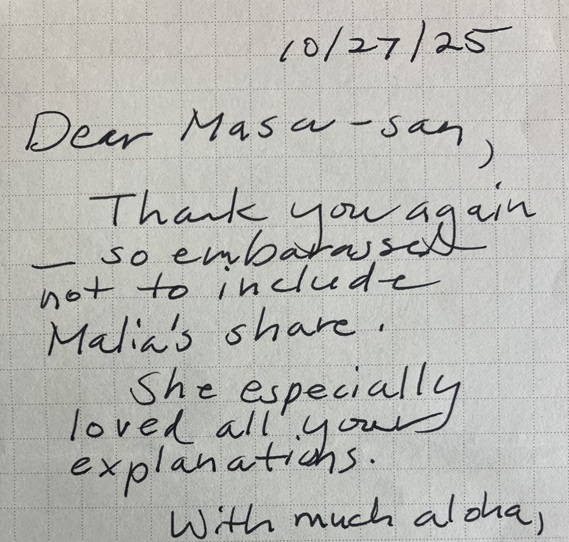 10/27/25
Dear Masa-san,
Thank you again
— so embarassed
not to include
Malia's share.
She especially
loved all your
explanations.
With much aloha,